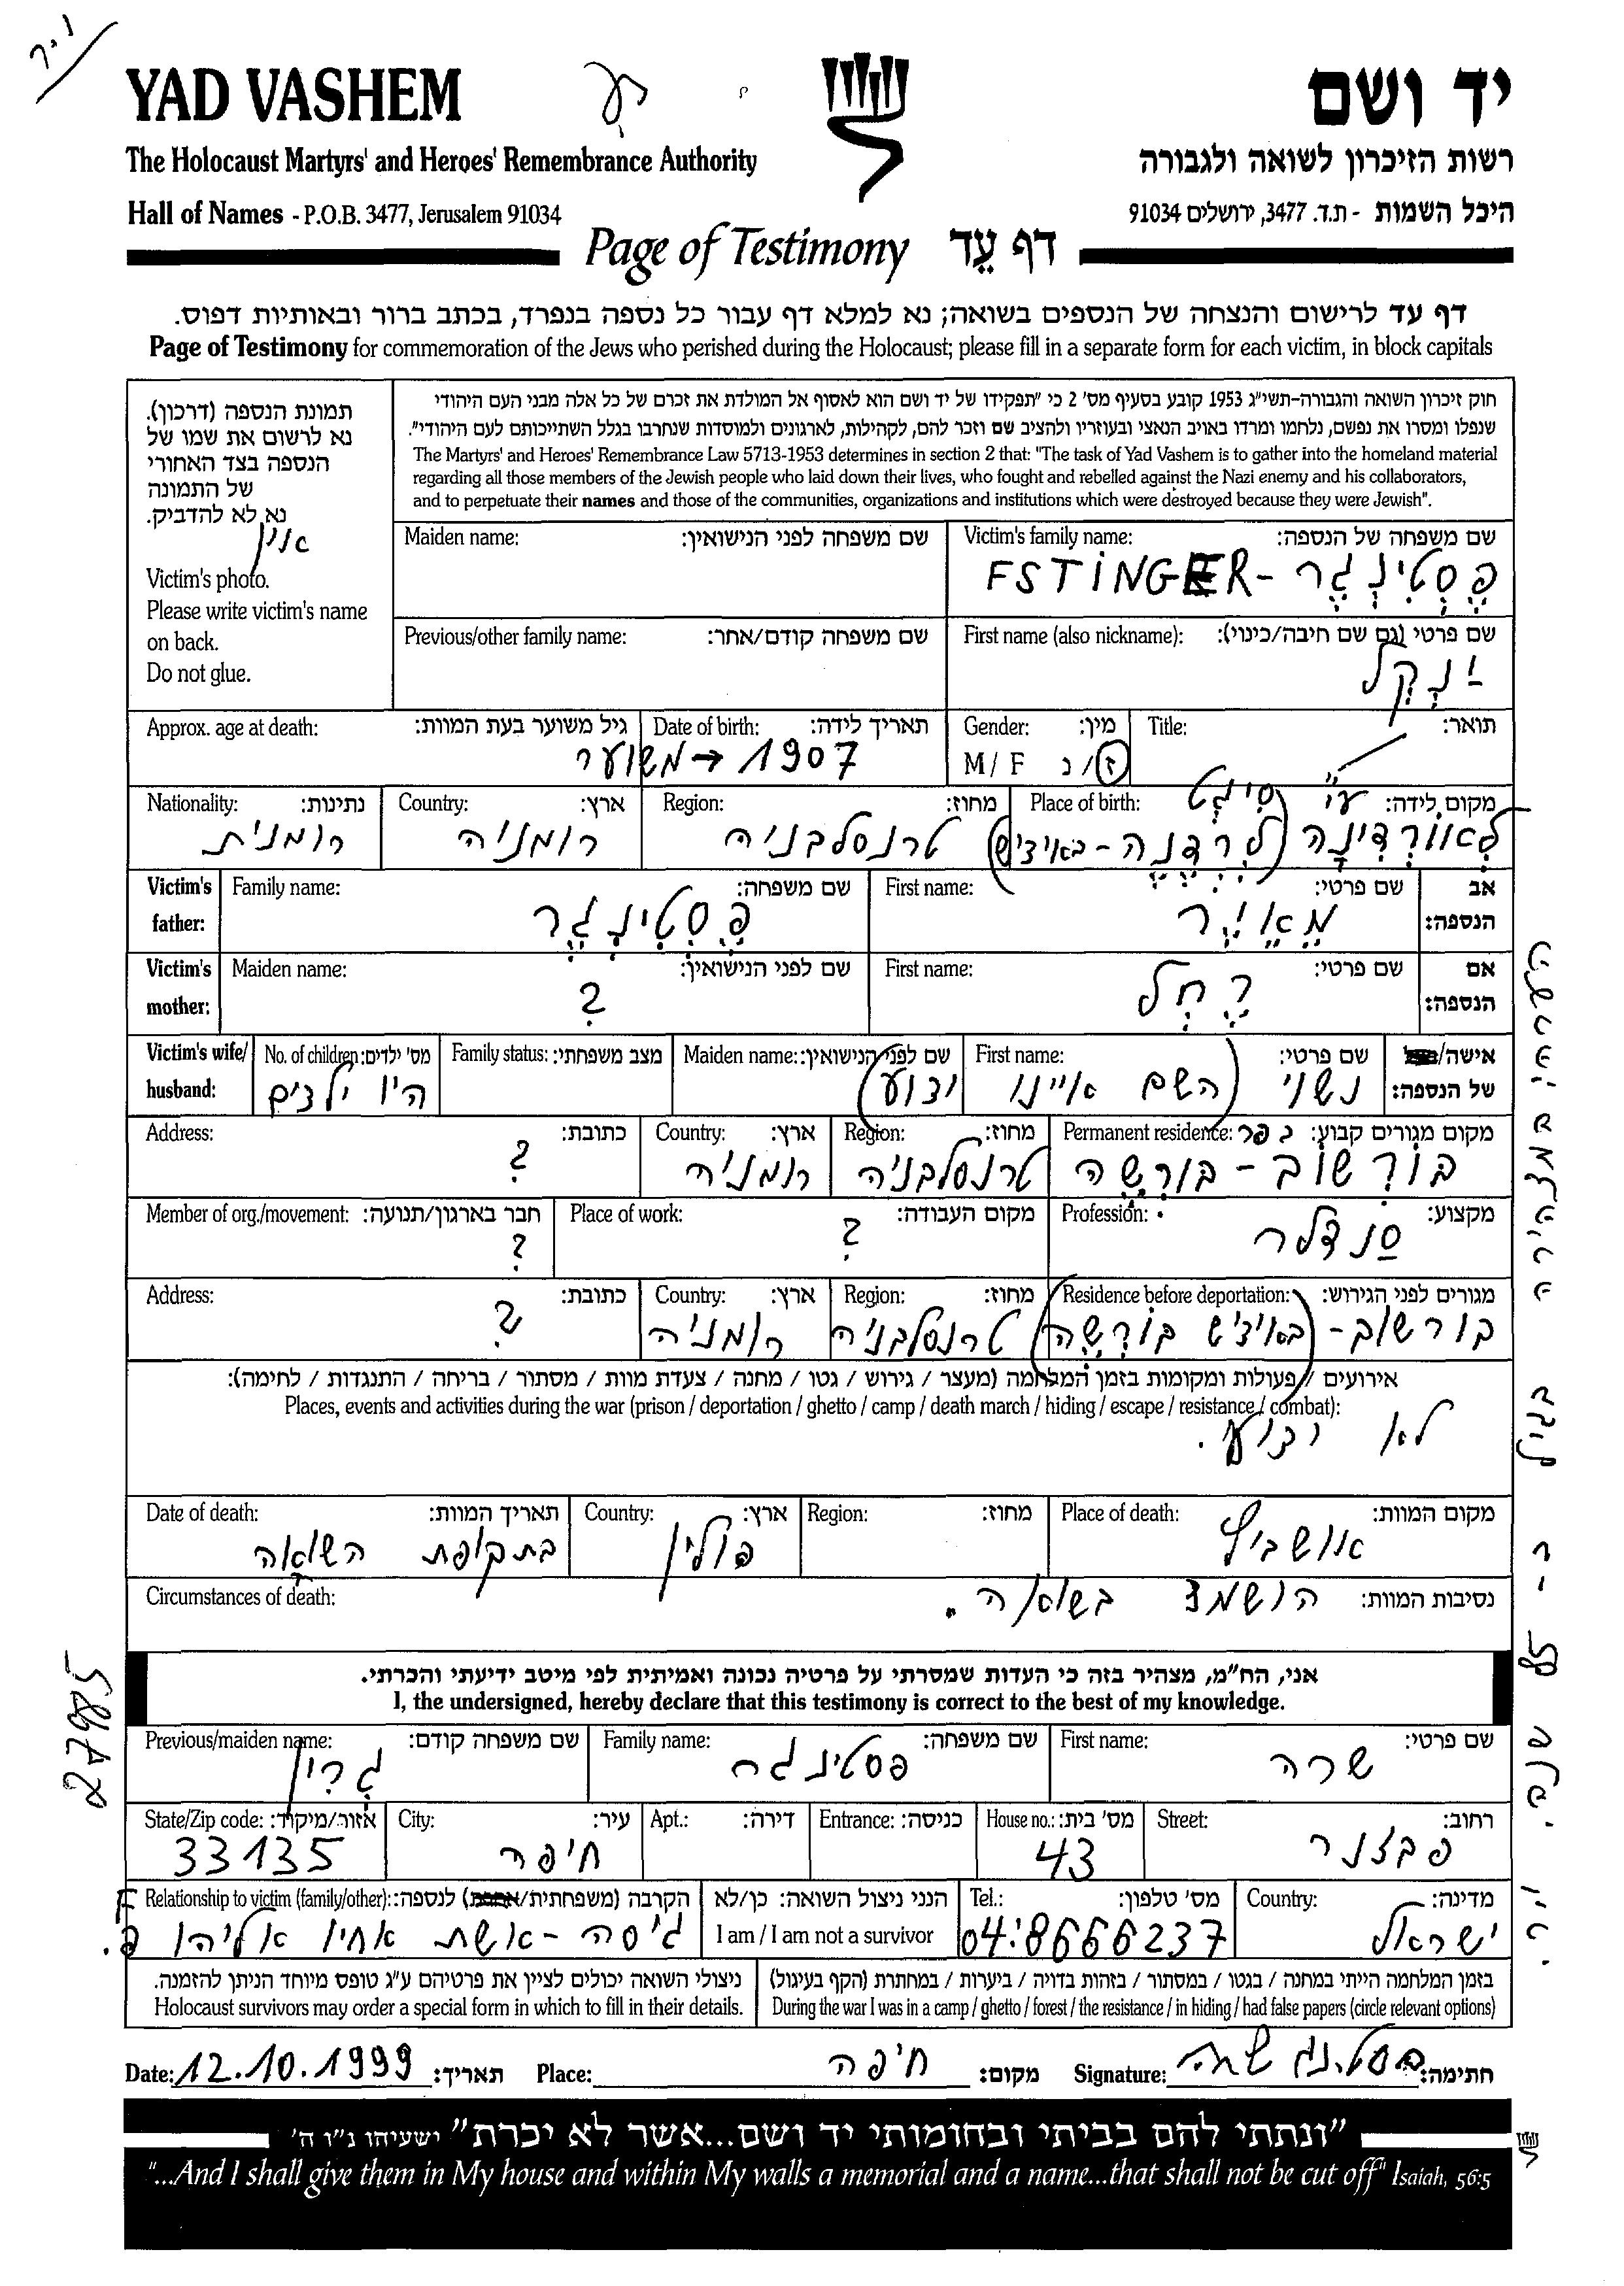 ו.ר
YAD VASHEM
יד ושם
The Holocaust Martyrs' and Heroes' Remembrance Authority
רשות הזיכרון לשואה ולגבורה
Hall of Names - P.O.B. 3477, Jerusalem 91034
היכל השמות - ת.ד. 3477, ירושלים 91034
Page of Testimony דף עֵד
דף עֵד לרישום והנצחה של הנספים בשואה; נא למלא דף עבור כל נספה בנפרד, בכתב ברור ובאותיות דפוס.
Page of Testimony for commemoration of the Jews who perished during the Holocaust; please fill in a separate form for each victim, in block capitals
תמונת הנספה (דרכון).
נא לרשום את שמו של
הנספה בצד האחורי
של התמונה
נא לא להדביק.
אין
Victim's photo.
Please write victim's name
on back.
Do not glue.
חוק זיכרון השואה והגבורה-תשי"ג 1953 קובע בסעיף מס' 2 כי "תפקידו של יד ושם הוא לאסוף אל המולדת את זכרם של כל אלה מבני העם היהודי
שנפלו ומסרו את נפשם, נלחמו ומרדו באויב הנאצי ובעוזריו ולהציב שם וזכר להם, לקהילות, לארגונים ולמוסדות שנחרבו בגלל השתייכותם לעם היהודי".
The Martyrs' and Heroes' Remembrance Law 5713-1953 determines in section 2 that: "The task of Yad Vashem is to gather into the homeland material
regarding all those members of the Jewish people who laid down their lives, who fought and rebelled against the Nazi enemy and his collaborators,
and to perpetuate their names and those of the communities, organizations and institutions which were destroyed because they were Jewish".
Victim's family name: שם משפחה של הנספה:
פסטינגר - FSTINGER
Maiden name: שם משפחה לפני הנישואין:
First name (also nickname): שם פרטי (גם שם חיבה/כינוי):
ינקל
Previous/other family name: שם משפחה קודם/אחר:
Title: תואר:
Gender: מין:
M / F ז / נ
Date of birth: תאריך לידה:
1907 → משוער
Approx. age at death: גיל משוער בעת המוות:
Place of birth: מקום לידה:
ע"י סיגט
לאורדינה (לרדנה - באידיש)
Region: מחוז:
טרנסלבניה
Country: ארץ:
רומניה
Nationality: נתינות:
רומנית
Victim's father: אב הנספה:
First name: שם פרטי:
מאיר
Family name: שם משפחה:
פסטינגר
Victim's mother: אם הנספה:
First name: שם פרטי:
רחל
Maiden name: שם לפני הנישואין:
?
Victim's wife/ husband: אישה/ של הנספה:
First name: שם פרטי:
נשוי (השם איינו
Maiden name: שם לפני הנישואין:
ידוע)
Family status: מצב משפחתי:
No. of children: מס' ילדים:
היו ילדים
Permanent residence: מקום מגורים קבוע:
כפר
בורשוב - בורשה
Region: מחוז:
טרנסלבניה
Country: ארץ:
רומניה
Address: כתובת:
?
Profession: מקצוע:
סנדלר
Place of work: מקום העבודה:
?
Member of org./movement: חבר בארגון/תנועה:
?
Residence before deportation: מגורים לפני הגירוש:
בורשוב - (באידיש בורשה)
Region: מחוז:
טרנסלבניה
Country: ארץ:
רומניה
Address: כתובת:
?
אירועים / פעולות ומקומות בזמן המלחמה (מעצר / גירוש / גטו / מחנה / צעדת מוות / מסתור / בריחה / התנגדות / לחימה):
Places, events and activities during the war (prison / deportation / ghetto / camp / death march / hiding / escape / resistance / combat):
לא ידוע.
Place of death: מקום המוות:
אושביץ
Region: מחוז:
Country: ארץ:
פולין
Date of death: תאריך המוות:
בתקופת השואה
Circumstances of death: נסיבות המוות:
הושמד בשואה.
אני, הח"מ, מצהיר בזה כי העדות שמסרתי על פרטיה נכונה ואמיתית לפי מיטב ידיעתי והכרתי.
I, the undersigned, hereby declare that this testimony is correct to the best of my knowledge.
First name: שם פרטי:
שרה
Family name: שם משפחה:
פסטינגר
Previous/maiden name: שם משפחה קודם:
גרין
Street: רחוב:
פבזנר
House no.: מס' בית:
43
Entrance: כניסה:
Apt.: דירה:
City: עיר:
חיפה
State/Zip code: אזור/מיקוד:
33135
Country: מדינה:
ישראל
Tel.: מס' טלפון:
04:8666237
הנני ניצול השואה: כן/לא
I am / I am not a survivor
Relationship to victim (family/other): הקרבה (משפחתית/אחרת) לנספה:
גיסה - אשת אחיו אליהו פ.
F
בזמן המלחמה הייתי במחנה / בגטו / במסתור / בזהות בדויה / ביערות / במחתרת (הקף בעיגול)
During the war I was in a camp / ghetto / forest / the resistance / in hiding / had false papers (circle relevant options)
ניצולי השואה יכולים לציין את פרטיהם ע"ג טופס מיוחד הניתן להזמנה.
Holocaust survivors may order a special form in which to fill in their details.
Date: 12.10.1999 תאריך: Place: חיפה מקום: Signature: פסטינגר שרה חתימה:
"ונתתי להם בביתי ובחומותי יד ושם...אשר לא יכרת" ישעיהו נ"ו ה'
"...And I shall give them in My house and within My walls a memorial and a name...that shall not be cut off" Isaiah, 56:5
27985